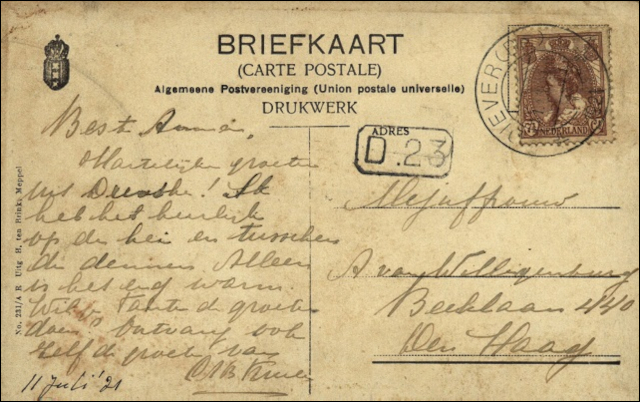 BRIEFKAART
(CARTE POSTALE)
Algemeene Postvereeniging (Union postale universelle)
DRUKWERK
ADRES
D.23
DIEVER
7½
NEDERLAND
No. 231/A E Uitg H. ten Brink, Meppel
Best Annie,
Hartelijke groeten
uit Drenthe! Ik
heb het heerlijk
op de hei en tusschen
de dennen Alleen
is het erg warm.
Wil je Tante de groeten
doen? Ontvang ook
zelf de groeten van
11 Juli '21
Mejuffrouw
A van Willigenburg
Beeklaan 440
Den Haag